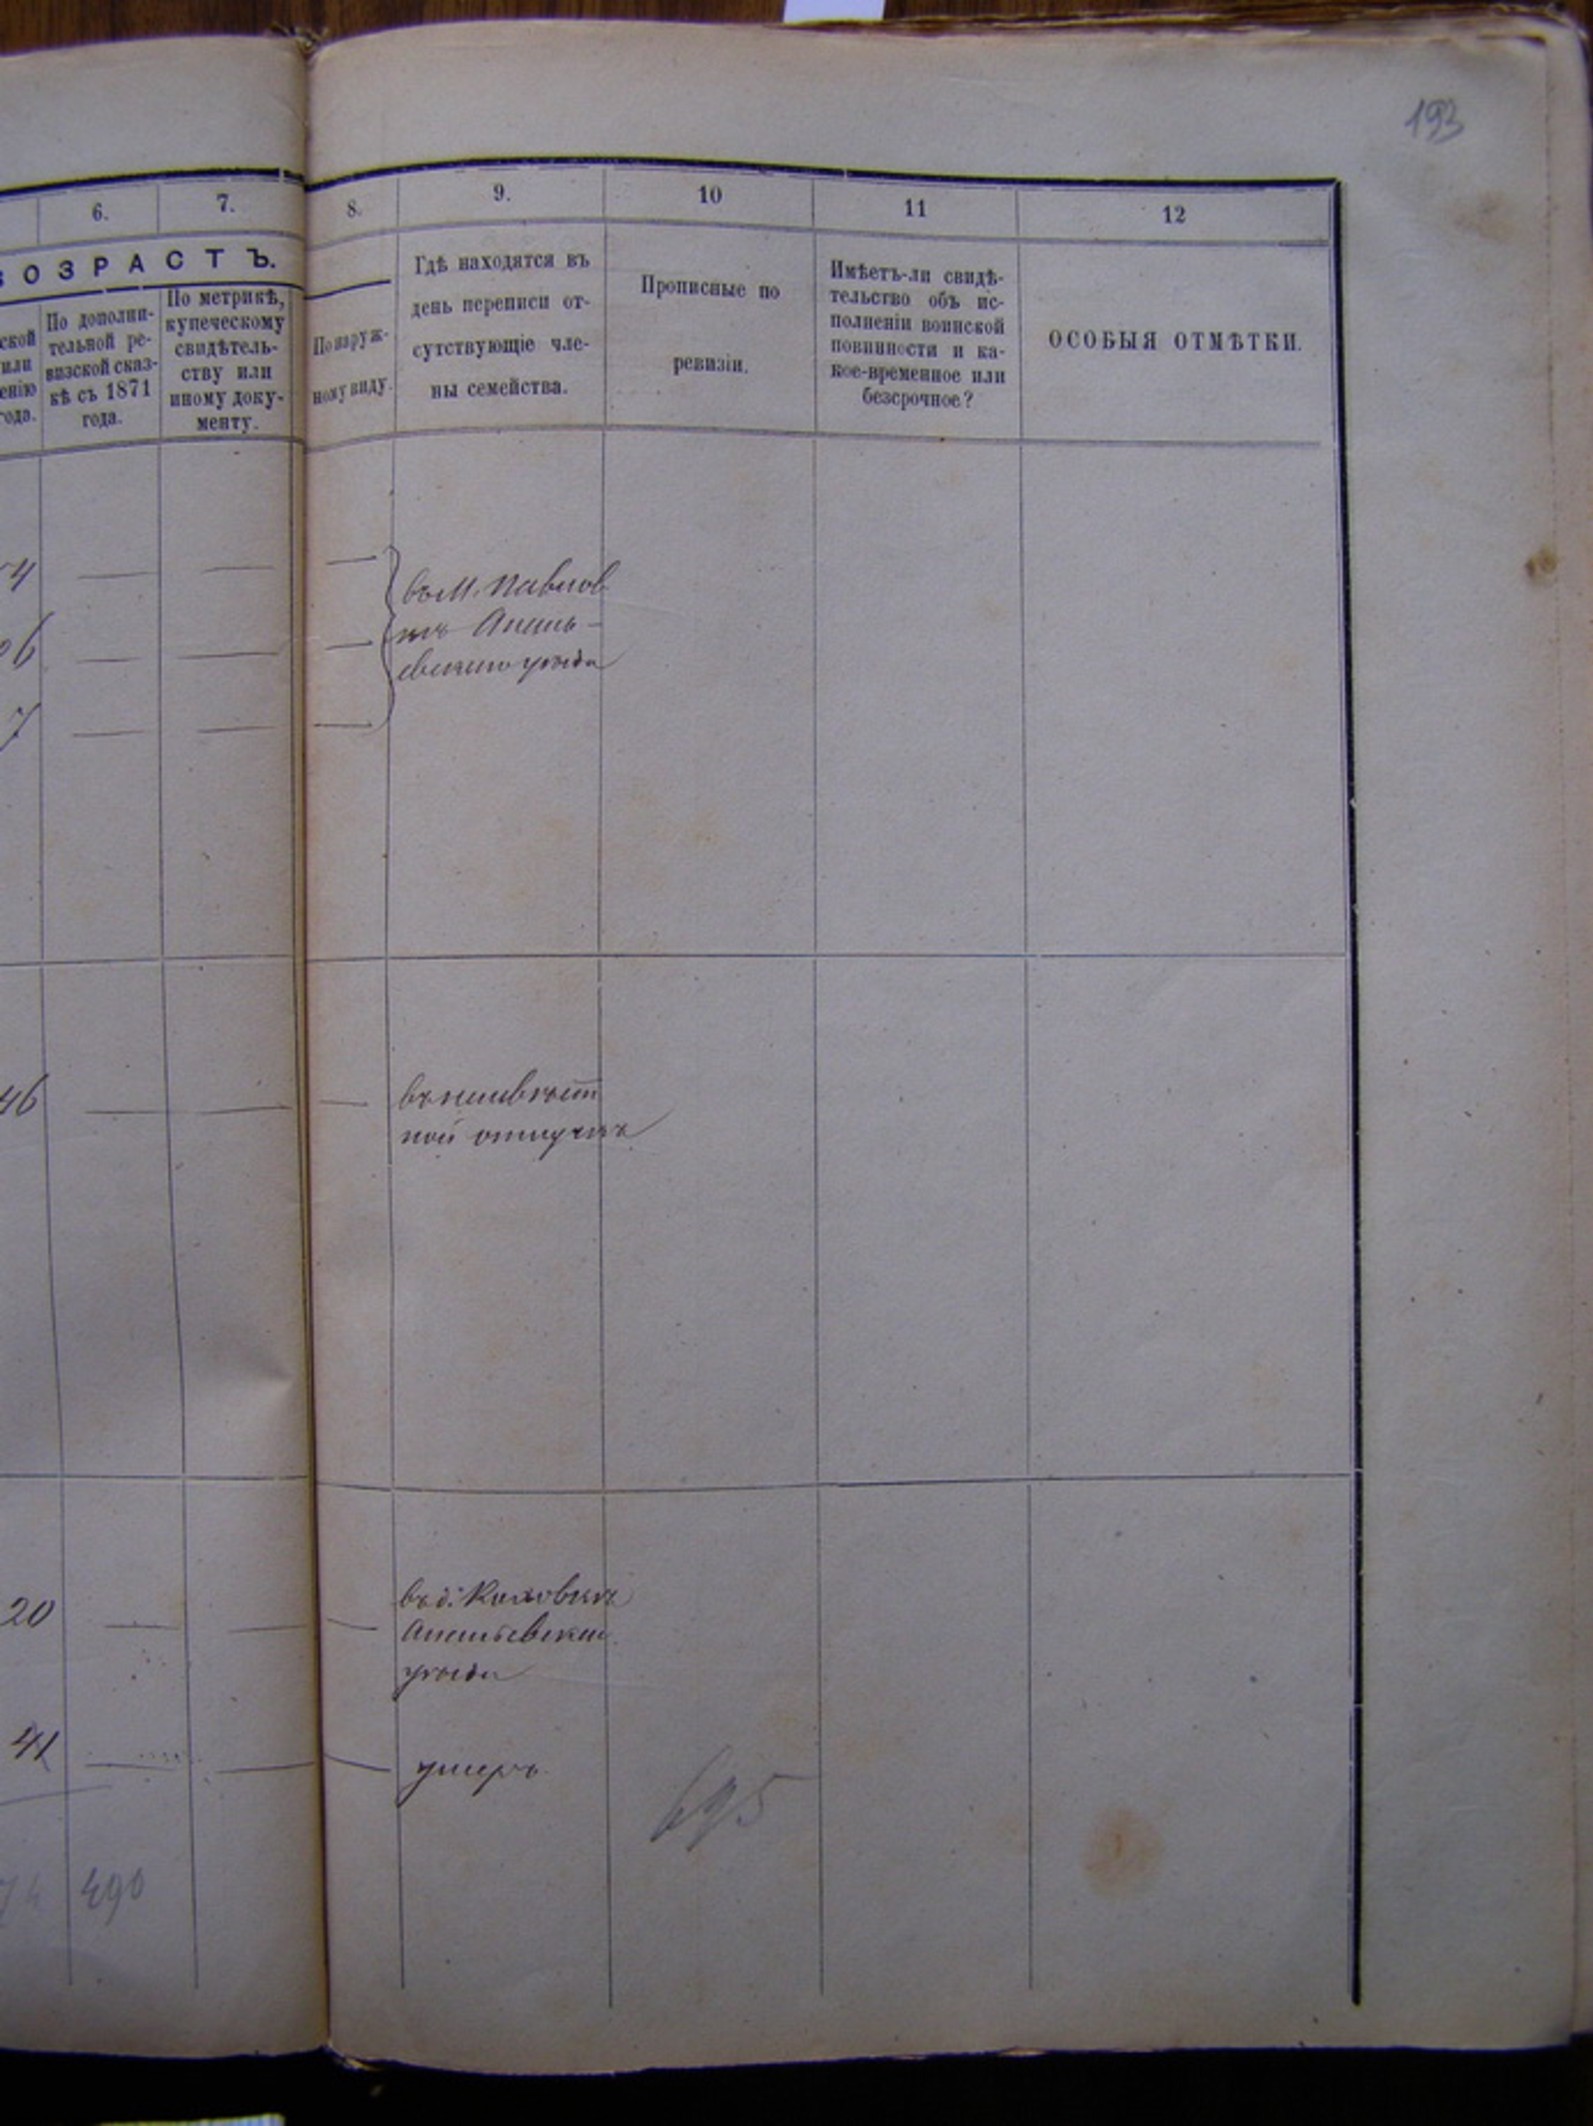 193
6. 7. 8. 9. 10 11 12
ВОЗРАСТЪ.
ской
или
енію
года.
По дополни-
тельной ре-
визской сказ-
кѣ съ 1871
года.
По метрикѣ,
купеческому
свидѣтель-
ству или
иному доку-
менту.
По наруж-
ному виду.
Гдѣ находятся въ
день переписи от-
сутствующіе чле-
ны семейства.
Прописные по
ревизіи.
Имѣетъ-ли свидѣ-
тельство объ ис-
полненіи воинской
повинности и ка-
кое-временное или
безсрочное?
ОСОБЫЯ ОТМѢТКИ.
4 — — —
въ м. Павлов
кѣ Анань-
евскаго уѣзда
6 — — —
7 — — —
46 — —
въ неизвѣст
ной отлучкѣ
20 — — —
въ д.
Ананьевскаго
уѣзда
41 — — —
умеръ
695
490